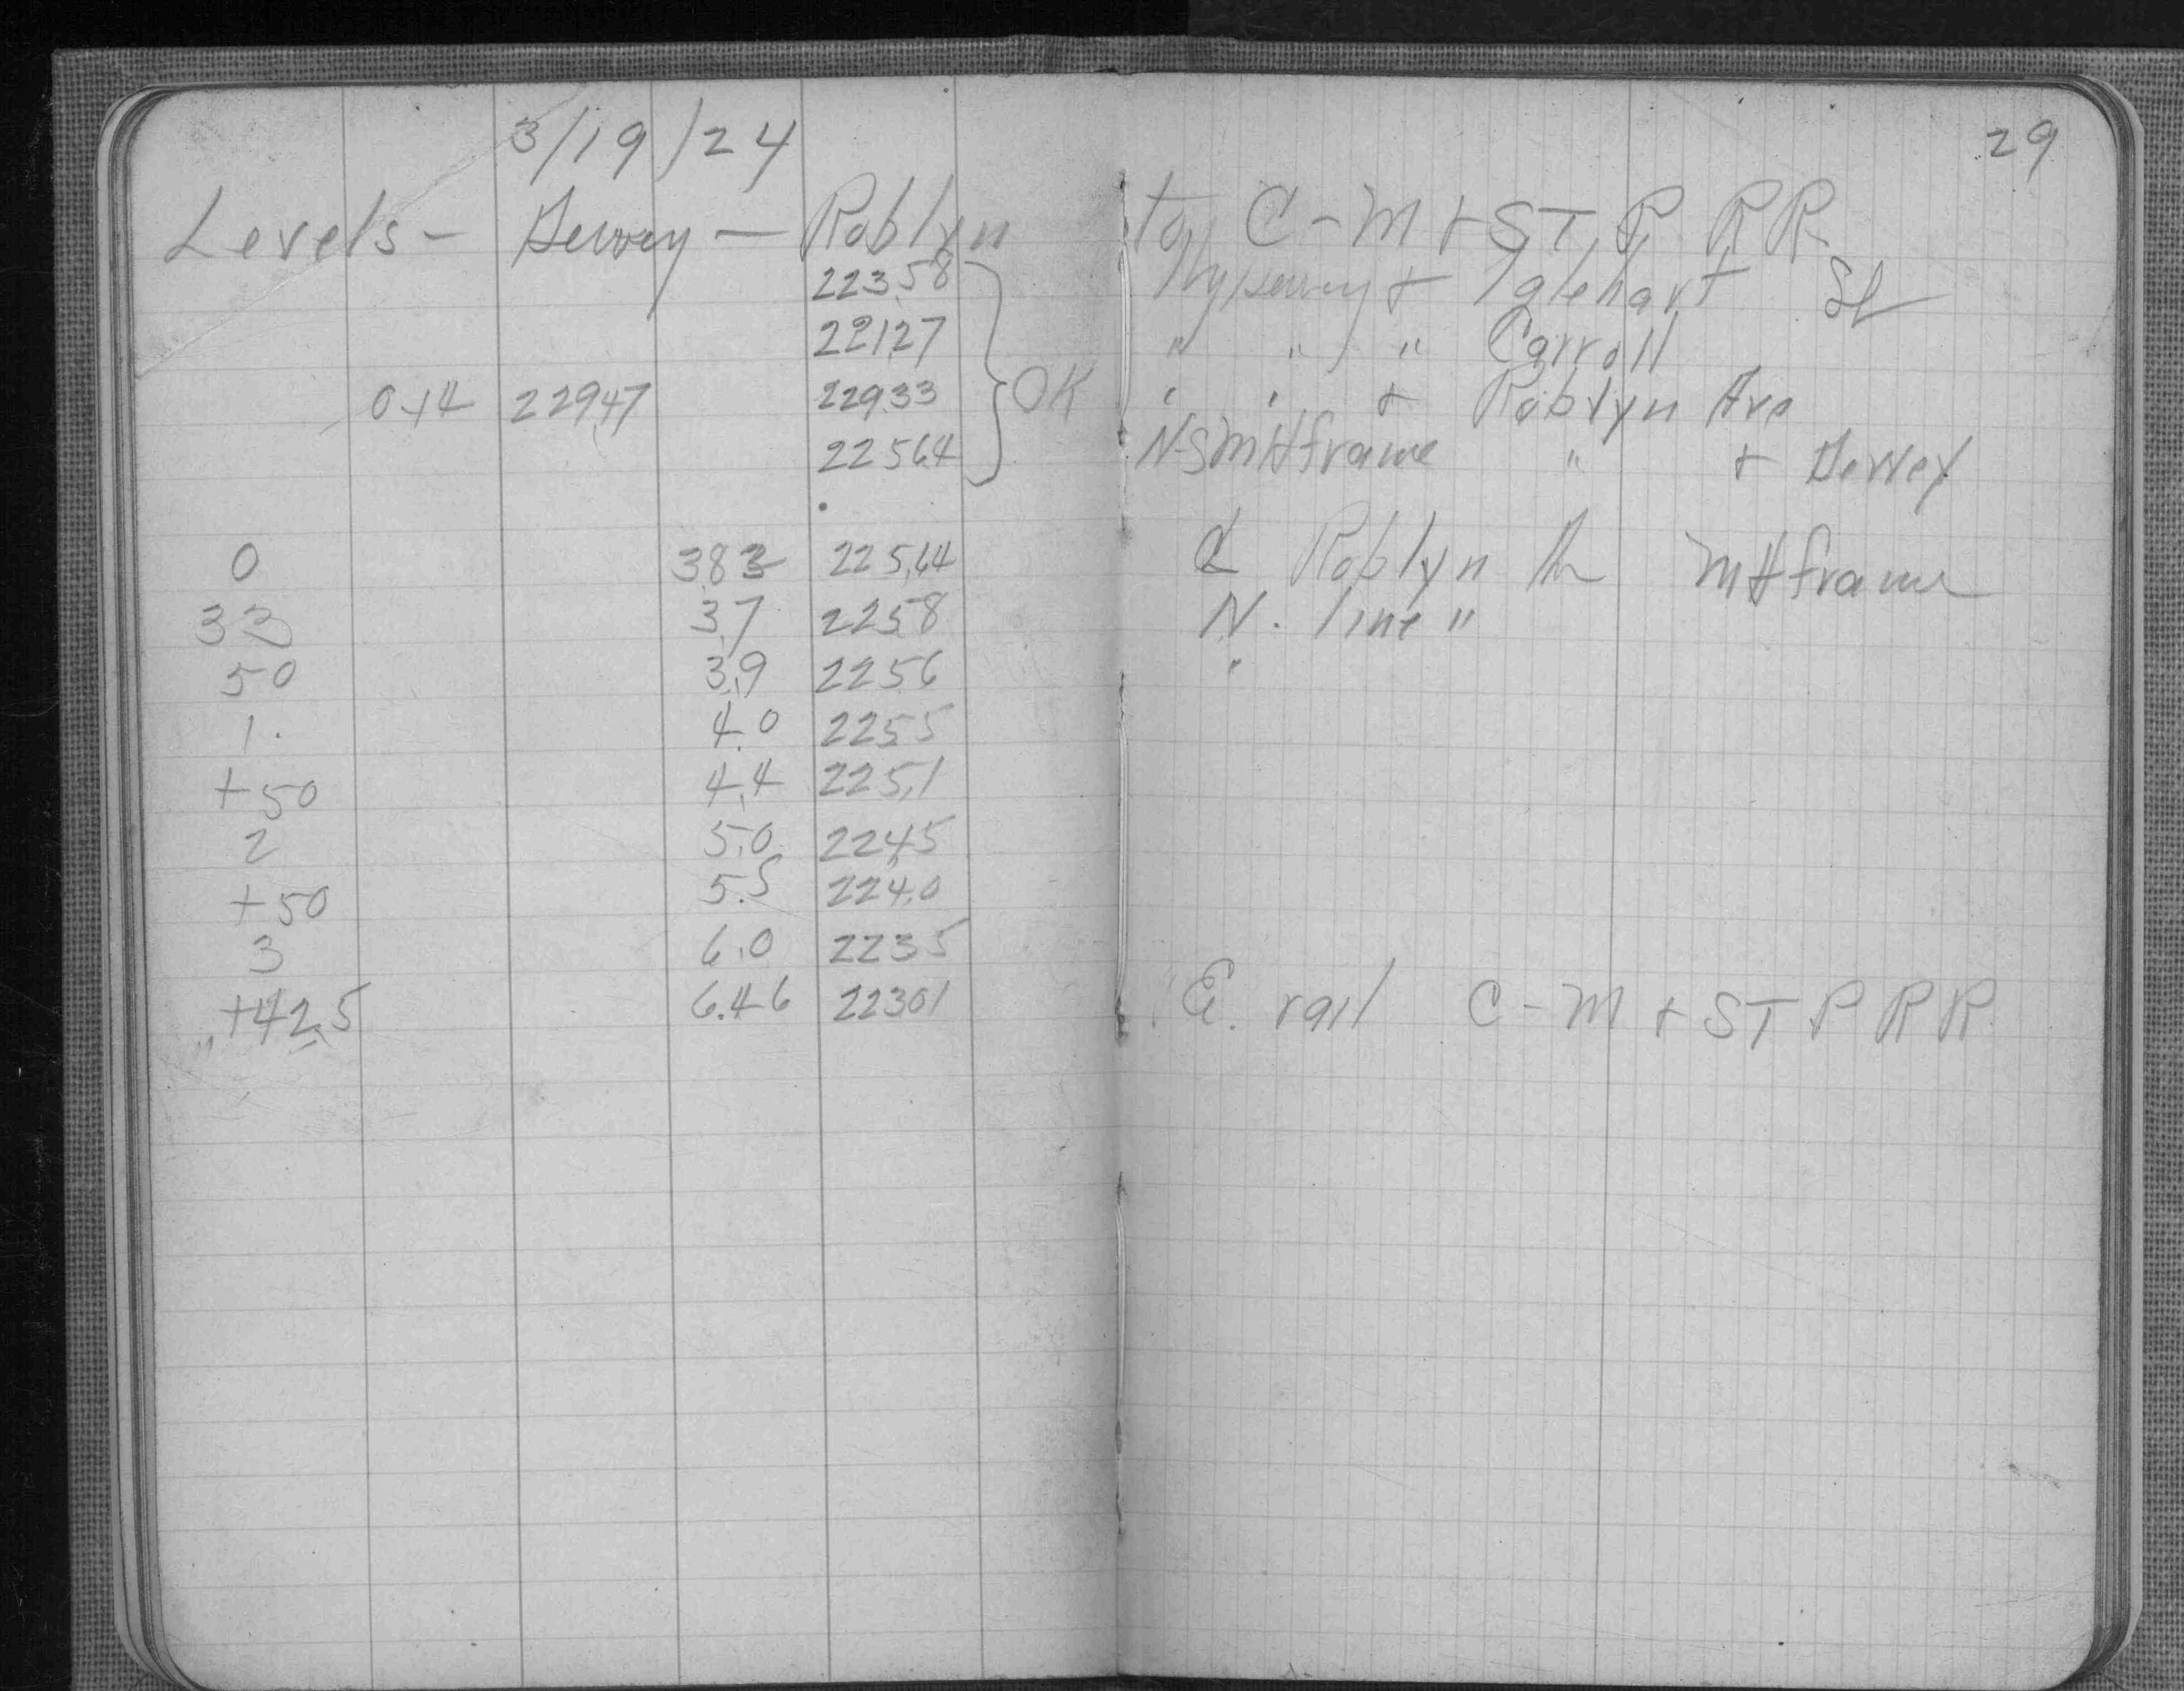 29
3/19/24
Levels - Dewey - Roblyn to C-M + ST. P. RR.
223.58 Hy Dewey + Iglehart St
221.27 " " " Carroll
0.14 229.47 229.33 OK " " + Roblyn Ave
225.64 N-S MH frame " + Dewey
0 3.83 225.64 Roblyn MH frame
33 3.7 225.8 N. line "
50 3.9 225.6 "
1. 4.0 225.5
+50 4.4 225.1
2 5.0 224.5
+50 5.5 224.0
3 6.0 223.5
+42.5 6.46 223.01 E. rail C-M + ST P RR